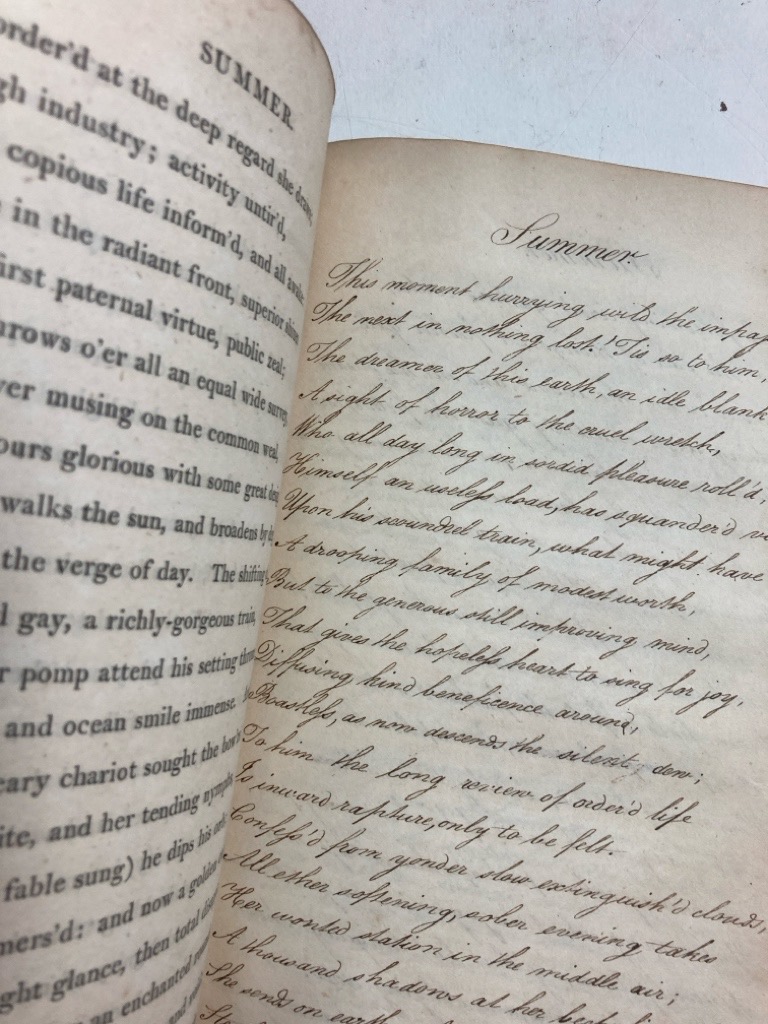 SUMMER.
order'd at the deep regard she draws
gh industry; activity untir'd,
copious life inform'd, and all awake
in the radiant front, superior shines
first paternal virtue, public zeal;
hrows o'er all an equal wide survey
ver musing on the common weal,
ours glorious with some great
walks the sun, and broadens by
the verge of day. The shifting
gay, a richly-gorgeous train,
pomp attend his setting
and ocean smile immense.
eary chariot sought the
ite, and her tending nymphs
fable sung) he dips his
mers'd: and now a golden
ght glance, then total
an enchanted
and
Summer
This moment hurrying wild the impas
The next in nothing lost! 'Tis so to him,
The dreamer of this earth, an idle blank
A sight of horror to the cruel wretch,
Who all day long in sordid pleasure roll'd,
Himself an useless load, has squander'd
Upon his scoundrel train, what might have
A drooping family of modest worth,
But to the generous still improving mind,
That gives the hopeless heart to sing for joy,
Diffusing kind beneficence around,
Boastless, as now descends the silent dew;
To him the long review of order'd life
Is inward rapture, only to be felt.
Confess'd from yonder slow extinguish'd clouds,
All ether softening, sober evening takes
Her wonted station in the middle air;
A thousand shadows at her
She sends on earth